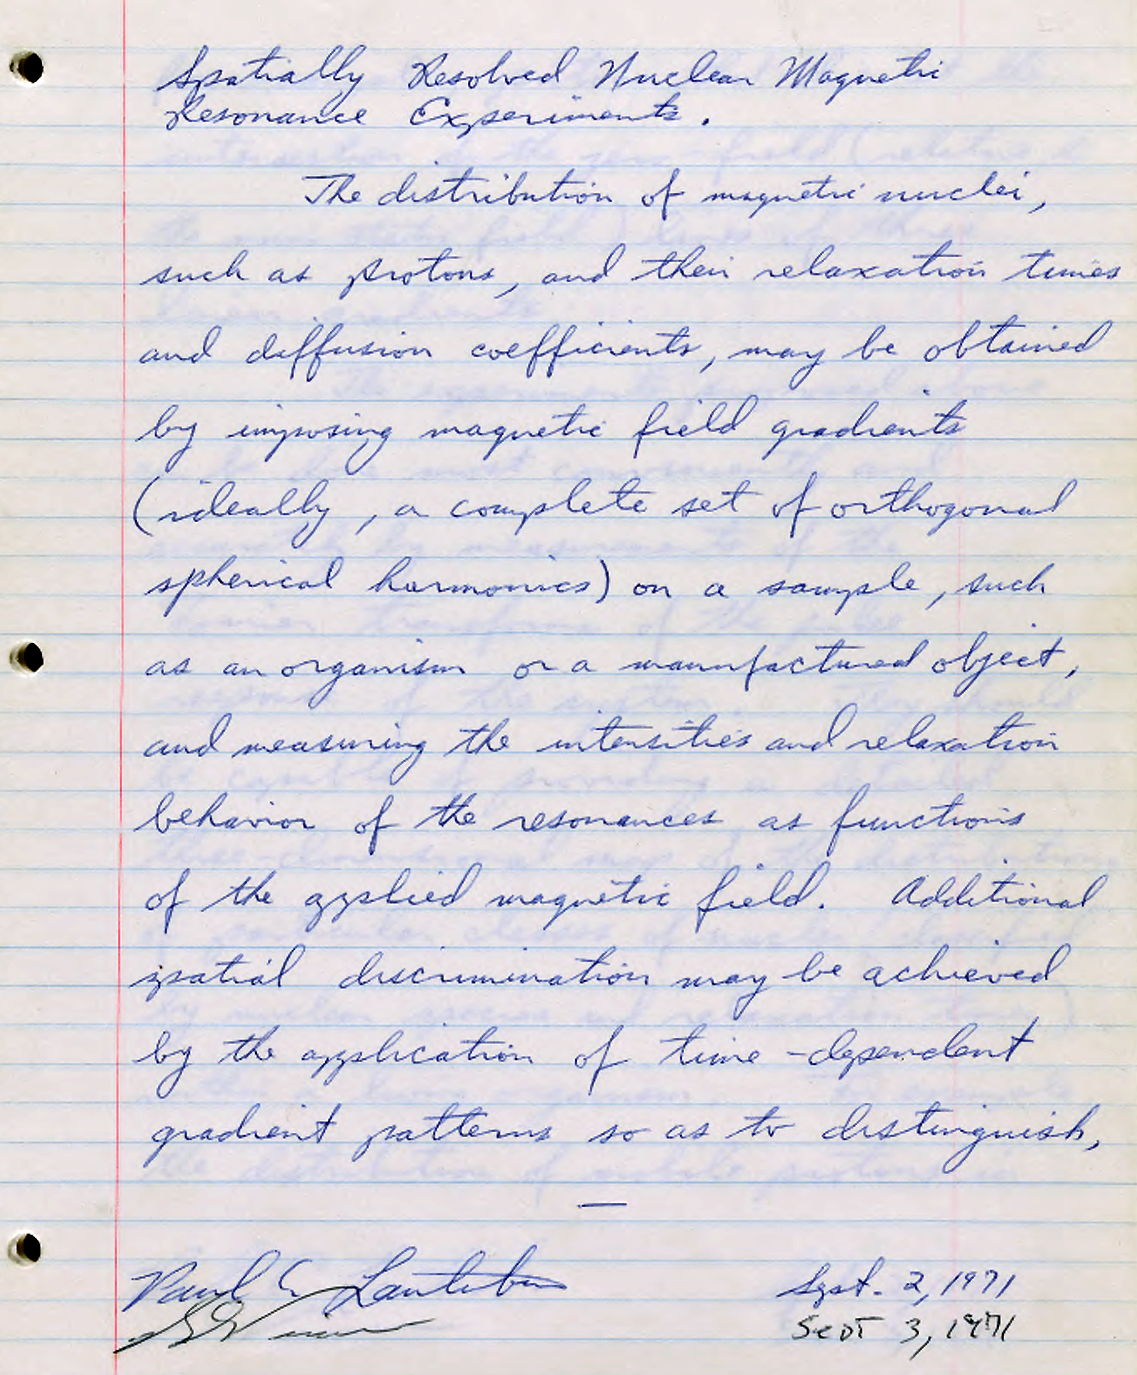 Spatially Resolved Nuclear Magnetic
Resonance Experiments.
The distribution of magnetic nuclei,
such as protons, and their relaxation times
and diffusion coefficients, may be obtained
by imposing magnetic field gradients
(ideally, a complete set of orthogonal
spherical harmonics) on a sample, such
as an organism or a manufactured object,
and measuring the intensities and relaxation
behavior of the resonances as functions
of the applied magnetic field. Additional
spatial discrimination may be achieved
by the application of time-dependent
gradient patterns so as to distinguish,
—
Paul C. Lauterbur Sept. 2, 1971
Sept 3, 1971